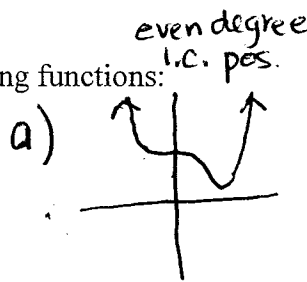 even degree
l.c. pos.
ng functions:
a)